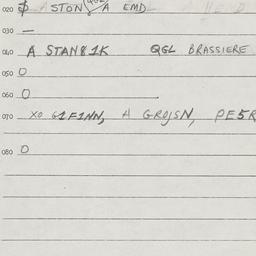 020 ASTON A EMD
030 —
040 A STAN81K QGL BRASSIERE
050 O
060 O
070 XO G1F1NN, A GROJSN, PE5R
080 O